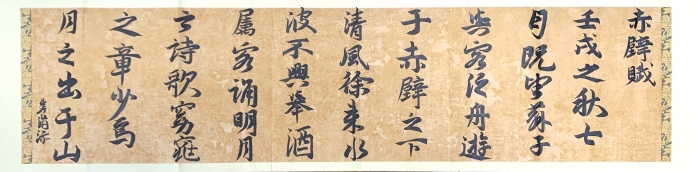 赤壁賦
壬戌之秋七
月既望蘇子
與客泛舟遊
于赤壁之下
清風徐来水
波不興舉酒
属客誦明月
之詩歌窈窕
之章少焉
月之出于山